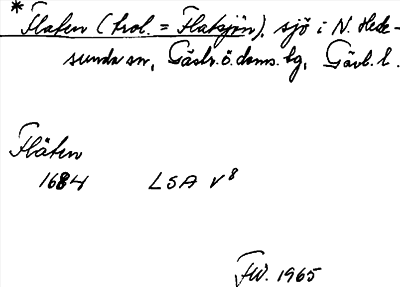 * Flaten (trol. = Flatsjön), sjö i N. Hede-
sunda sn, Gästr. ö. doms. hg, Gävl. l.
Flåten
1684 LSA V8
FW. 1965